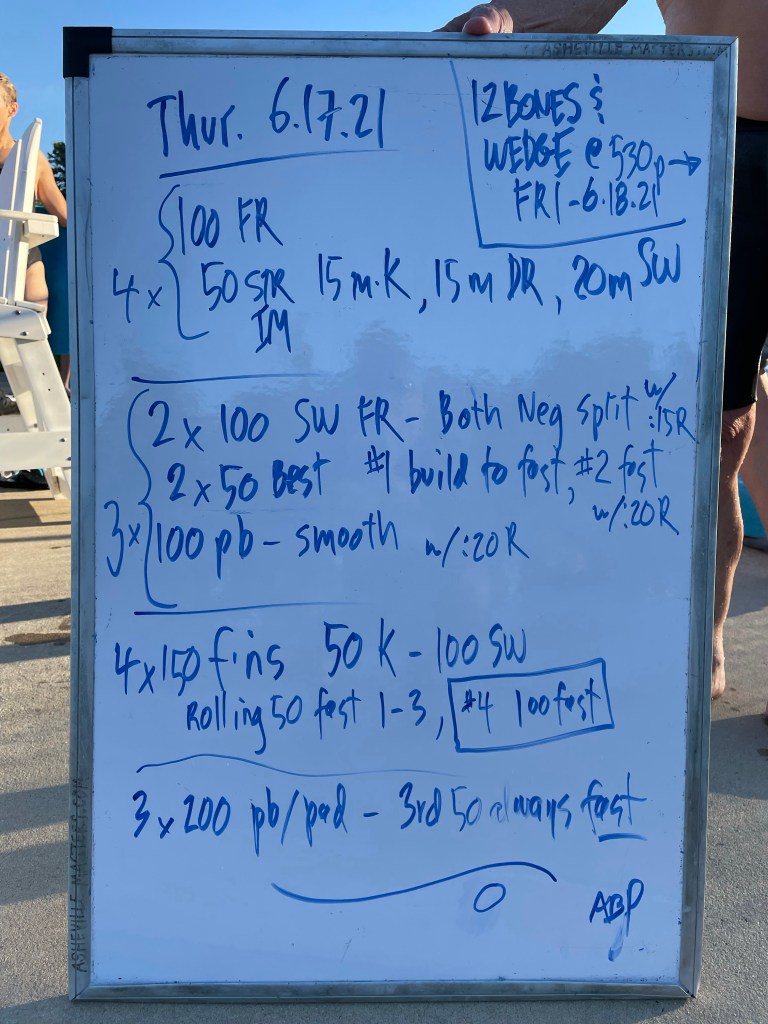 ASHEVILLE MATTERS.
Thur. 6.17.21
12 BONES &
WEDGE @ 530p →
FRI - 6.18.21
4 x { 100 FR
50 STR 15 m.K, 15 m DR, 20m SW
IM
3 x { 2 x 100 SW FR - Both Neg split w/ :15R
2 x 50 Best #1 build to fast, #2 fast w/ :20R
100 pb - smooth w/ :20R
4 x 150 fins 50 K - 100 SW
Rolling 50 fast 1-3, #4 100 fast
3 x 200 pb/pad - 3rd 50 always fast
O
ABP
ASHEVILLE MATTERS.COM